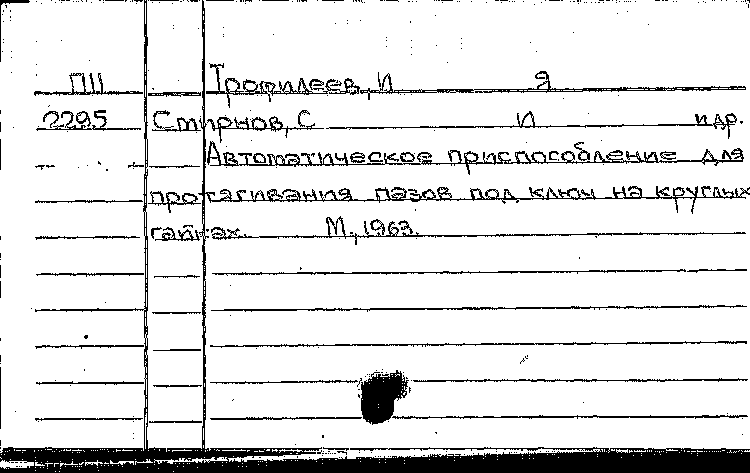 П11 Трофилеев, И Я
2295 Смирнов, С И и др.
Автоматическое приспособление для
протягивания пазов под ключ на круглых
гайках. М., 1963.